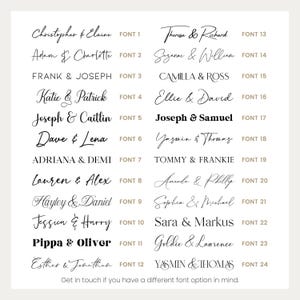 Christopher & Elaine FONT 1
Adam & Charlotte FONT 2
FRANK & JOSEPH FONT 3
Katie & Patrick FONT 4
Joseph & Caitlin FONT 5
Dave & Lena FONT 6
ADRIANA & DEMI FONT 7
Lauren & Alex FONT 8
Hayley & Daniel FONT 9
Jessica & Harry FONT 10
Pippa & Oliver FONT 11
Esther & Jonathan FONT 12
Thomas & Richard FONT 13
Suzanne & William FONT 14
CAMILLA & ROSS FONT 15
Ellie & David FONT 16
Joseph & Samuel FONT 17
Yasmin & Thomas FONT 18
TOMMY & FRANKIE FONT 19
Amanda & Phillip FONT 20
Sophia & Michael FONT 21
Sara & Markus FONT 22
Goldie & Laurence FONT 23
YASMIN & THOMAS FONT 24
Get in touch if you have a different font option in mind